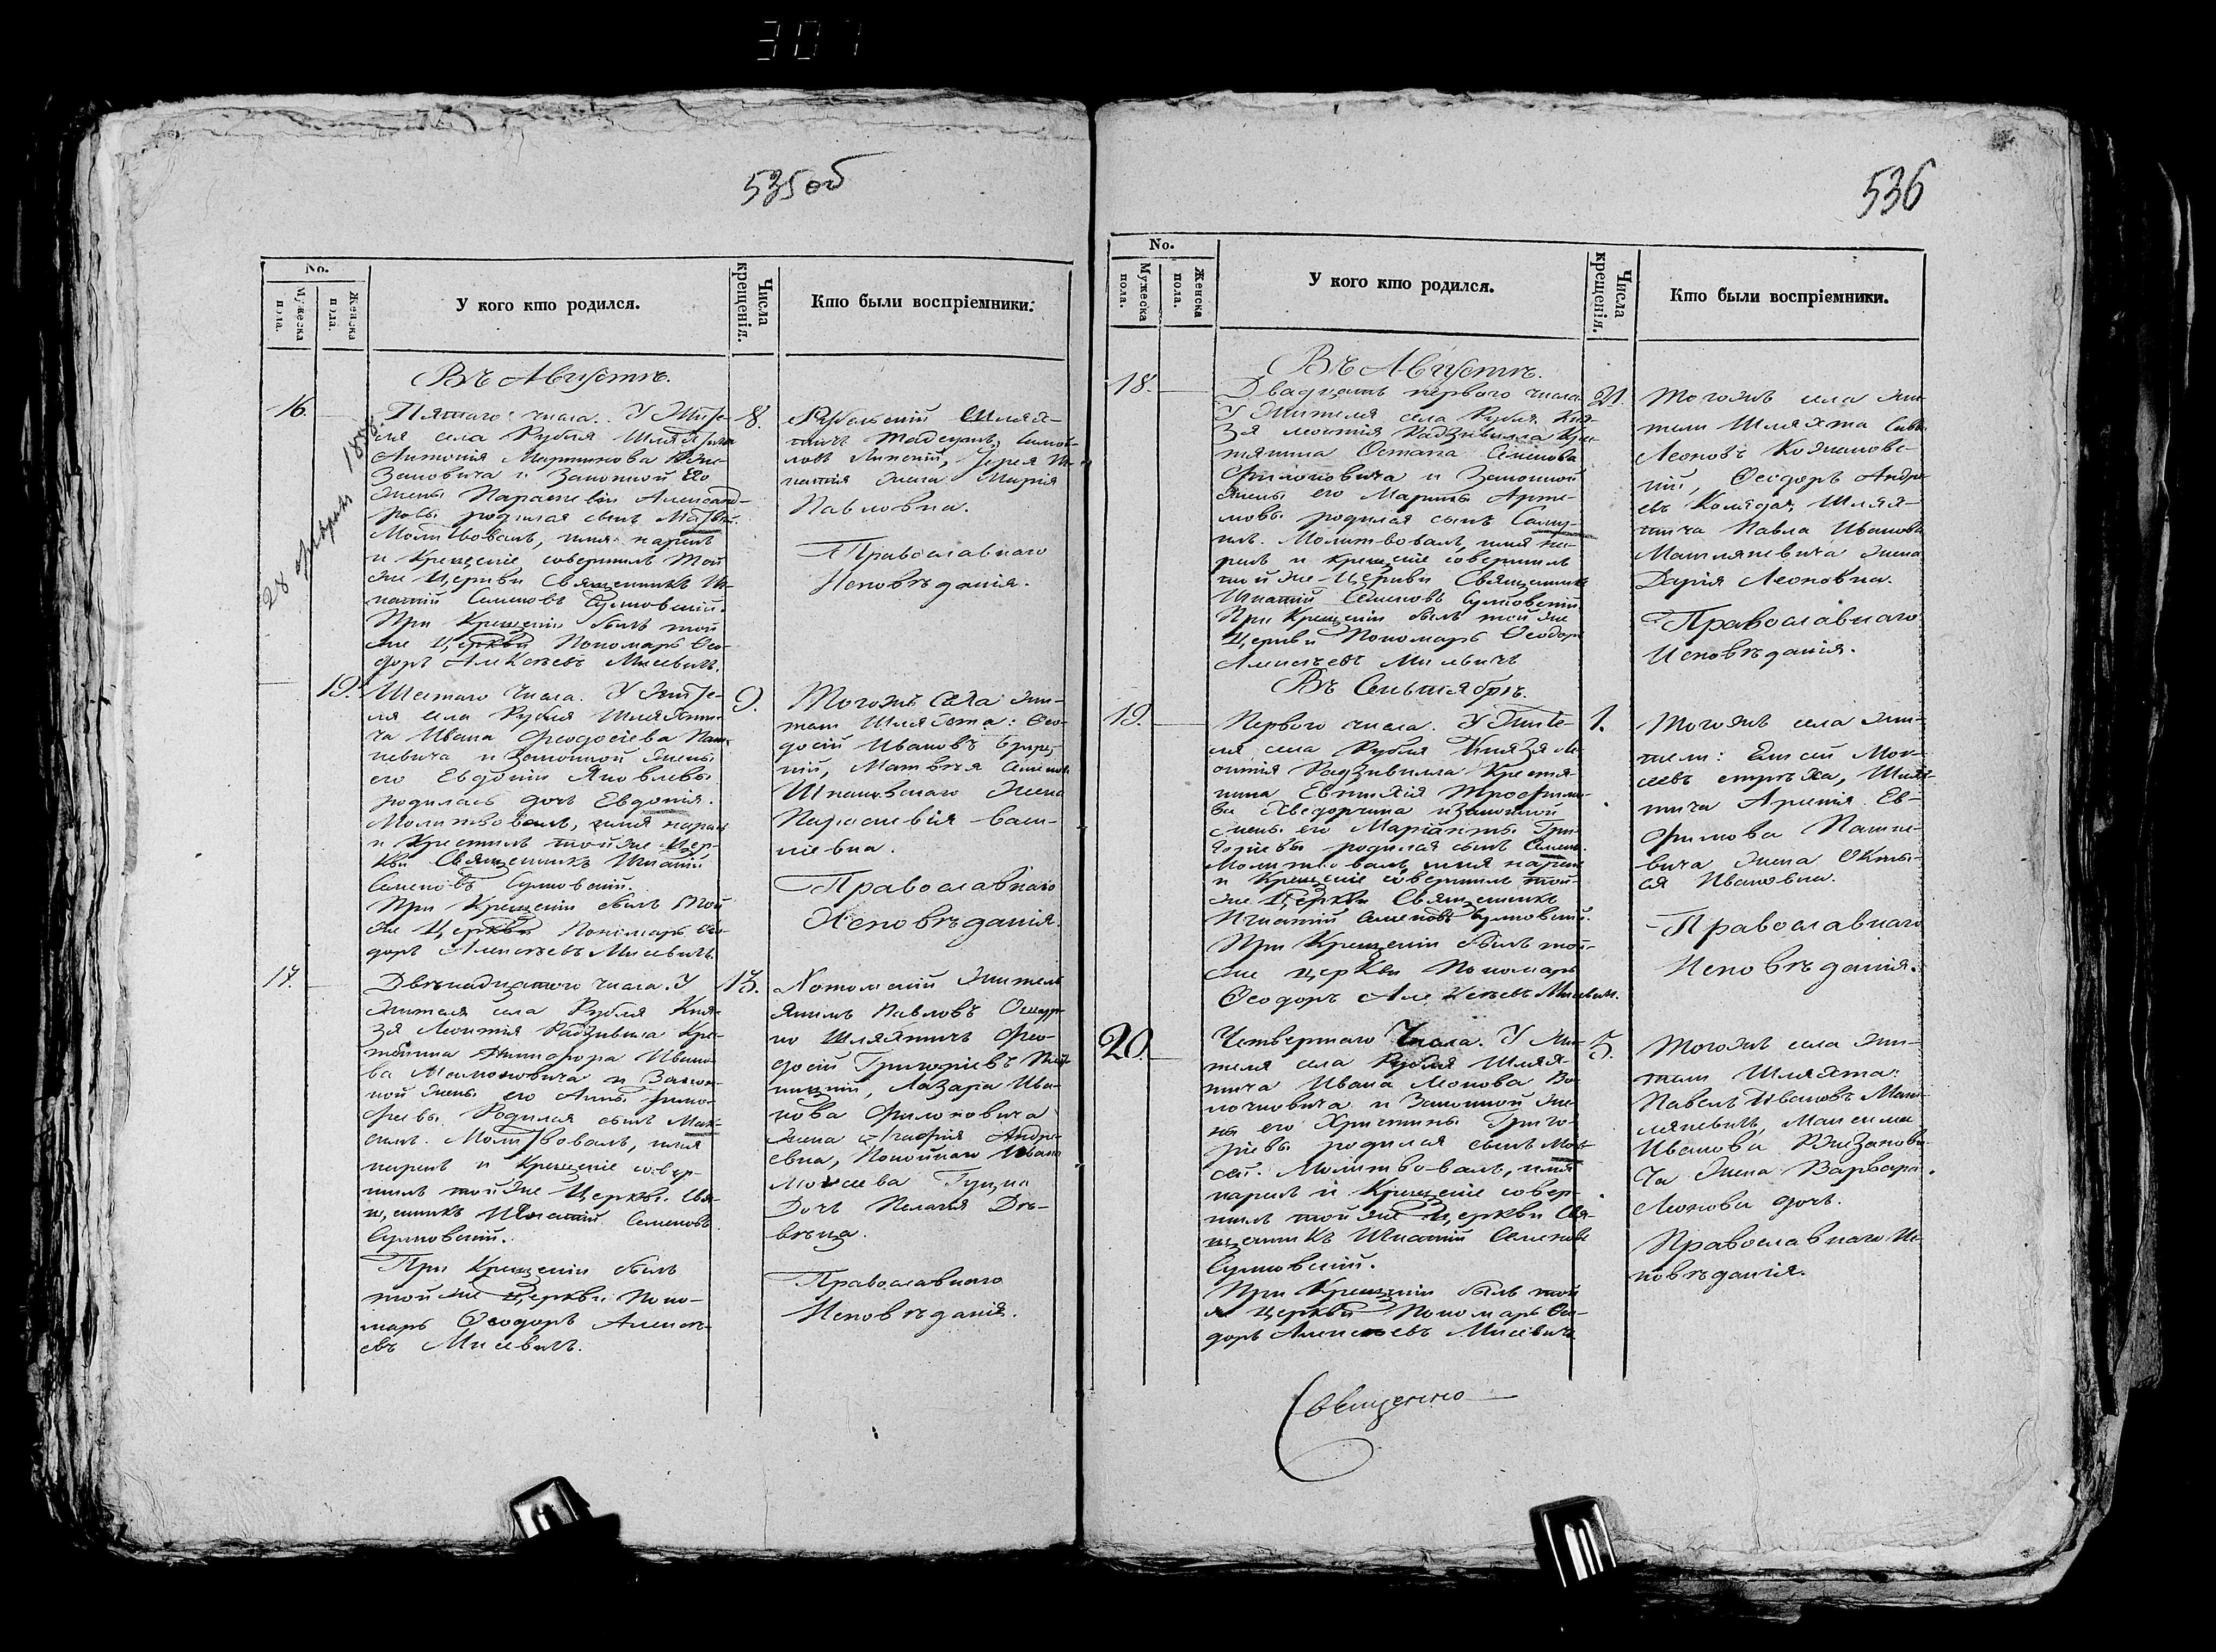 307
535об
No.
Мужеска пола.
Женска пола.
У кого кто родился.
Числа крещенія.
Кто были воспріемники.
Въ Августѣ.
16.
28 февраля
Пятаго числа. У Жите-
ля села Рубля Шляхтича
Антонія Мартинова
Зановича и Законной Его
Жены Параскевіи Александ-
ровы родился сынъ Матѳей.
Молитвовалъ, имя нарекъ
и Крещеніе совершилъ той
же Церкви Священникъ Иг-
натій Семеновъ
При Крещеніи былъ той
же Церкви Пономарь Ѳео-
доръ Алексѣевъ Мисевичъ.
8.
Рубельскій Шлях-
тичъ
Іерея Иг-
натія Жена Марія
Павловна.
Православнаго
Исповѣданія.
19.
Шестаго Числа. У Жите-
ля села Рубля Шляхти-
ча Ивана Феодосіева Паш-
кевича и Законной Жены
его Евдокіи Яковлевы
родилась дочь Евдокія.
Молитвовалъ, имя нарекъ
и Крестилъ той же Цер-
кви Священникъ Игнатій
Семеновъ
При Крещеніи былъ той
же Церкви Пономарь Ѳео-
доръ Алексѣевъ Мисевичъ.
9.
Тогожъ Села Жи-
тели Шляхта: Ѳео-
досій Ивановъ
Матвѣя Семенова
Жена
Параскевія Васи-
левна.
Православнаго
Исповѣданія.
17.
Двѣнадцатого числа. У
Жителя села Рубля Кня-
зя Леонтія Радзивила Кре-
стянина Никифора Ивано-
ва и Закон-
ной Жены его Анны Тимо-
феевы Родился сынъ Мак-
симъ. Молитвовалъ, имя
нарекъ и Крещеніе совер-
шилъ той же Церкви Свя-
щенникъ Игнатій Семеновъ
При Крещеніи былъ
той же Церкви Поно-
марь Ѳеодоръ Алексѣ-
евъ Мисевичъ.
13.
Хотомскій Житель
Якимъ Павловъ
Шляхтичъ Фео-
досій Григоріевъ
Лазаря Ива-
нова Филоновича
Жена Агафія Андре-
евна, Покойнаго Ивана
Моисеева
Дочь Пелагія Дѣ-
вѣца.
Православнаго
Исповѣданія.
536
No.
Мужеска пола.
Женска пола.
У кого кто родился.
Числа крещенія.
Кто были воспріемники.
Въ Августѣ.
18.
Двадцать перваго числа
У Жителя села Рубля Кня-
зя Леонтія Радзивилла Кре-
стянина Остапа Семенова
Филоновича и Законной
Жены его Марины Арте-
мовы родился сынъ Саму-
илъ. Молитвовалъ, имя на-
рекъ и крещеніе совершилъ
той же Церкви Священникъ
Игнатій Семеновъ
При Крещеніи былъ той же
Церкви Пономарь Ѳеодоръ
Алексѣевъ Мисевичъ
21.
Тогожъ села Жи-
тели Шляхта
Леоновъ Кожановс-
кій, Ѳеодоръ Андре-
евъ Шлях-
тича Павла Иванова
Жена
Дарія Леоновна.
Православнаго
Исповѣданія.
Въ Сентябрѣ.
19.
Перваго числа. У Жите-
ля села Рубля Князя Ле-
онтія Радзивилла Крестя-
нина Евтихія Трофимо-
ва и Законной
Жены его Маріанны Гри-
горіевы родился сынъ Семенъ.
Молитвовалъ, имя нарекъ
и Крещеніе совершилъ той-
же Церкви Священникъ
Игнатій Семеновъ
При Крещеніи былъ той-
же церкви Пономарь
Ѳеодоръ Алексѣевъ Мисевичъ.
1.
Тогожъ села Жи-
тели: Елисей Мои-
сеевъ Шлях-
тича Ев-
фимова Пашке-
вича Жена
Ивановна.
Православнаго
Исповѣданія.
20.
Четвертаго Числа. У Жи-
теля села Рубля Шлях-
тича Ивана
и Законной Же-
ны его Христины Григо-
ріевы родился сынъ Мои-
сей. Молитвовалъ, имя
нарекъ и Крещеніе совер-
шилъ той же церкви Свя-
щенникъ Игнатій Семеновъ
При Крещеніи былъ той
же церкви Пономарь Ѳео-
доръ Алексѣевъ Мисевичъ
5.
Тогожъ села Жи-
тели Шляхта:
Павелъ Ивановъ
Максима
Иванова
Жена Варвара
Леонова дочь.
Православнаго Ис-
повѣданія.